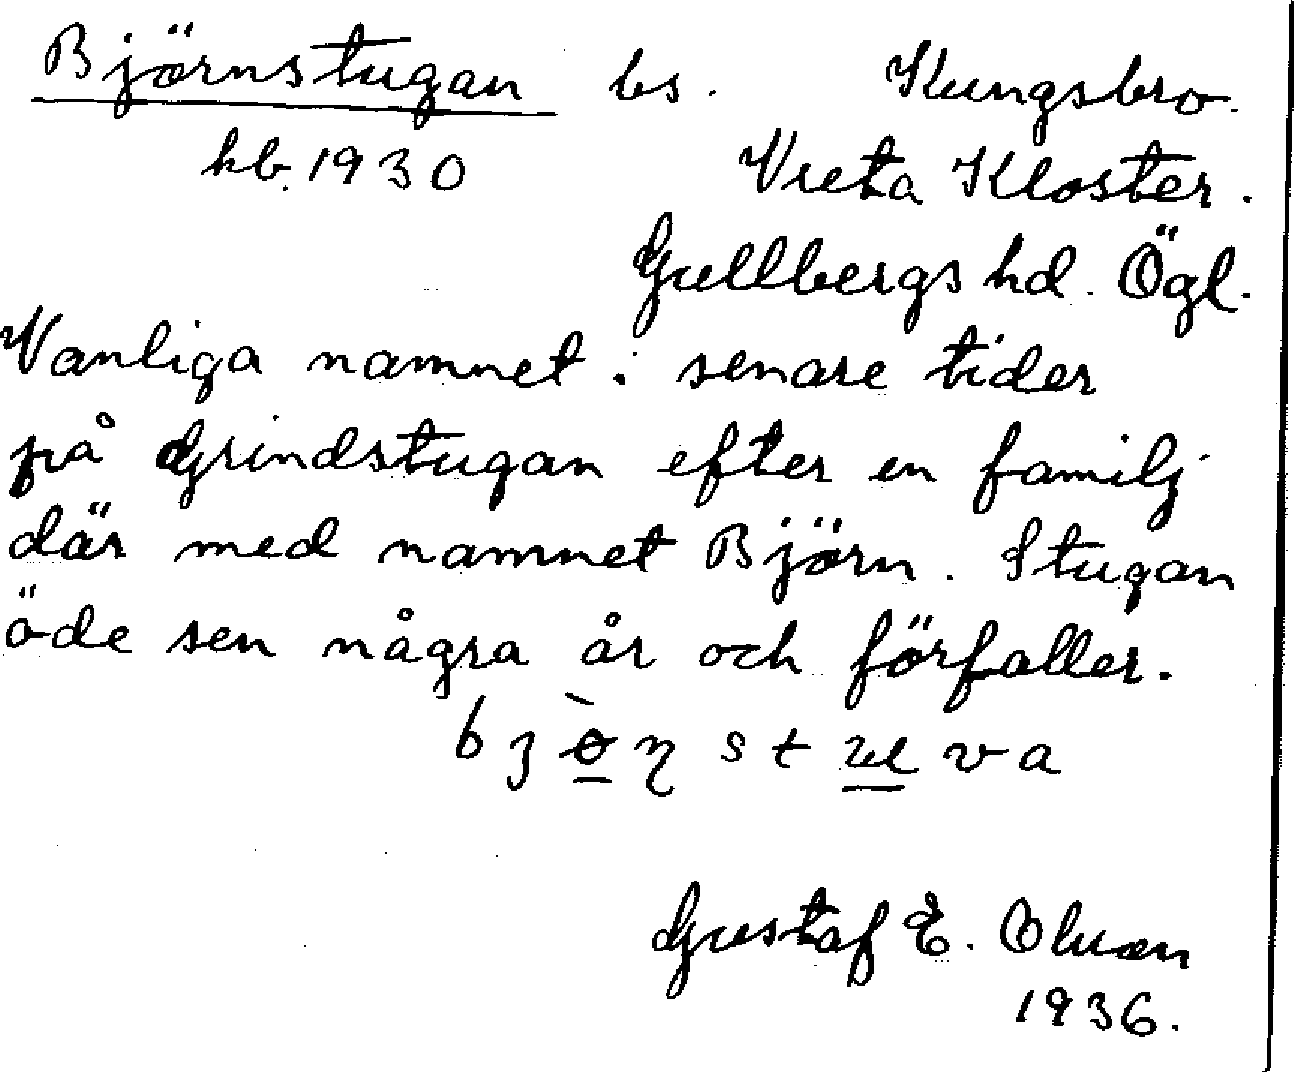 Björnstugan bs. Kungsbro.
kb. 1930 Vreta Kloster.
Gullbergs hd. Ögl.
Vanliga namnet i senare tider
på Grindstugan efter en familj
där med namnet Björn. Stugan
öde sen några år och förfaller.
Gustaf E. Olsson
1936.